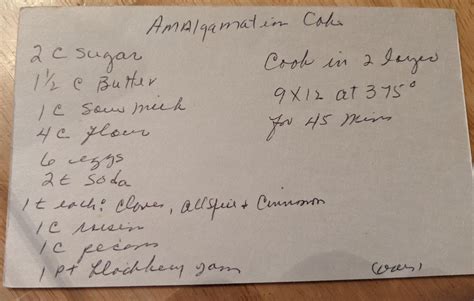 Amalgamation Cake
2 C Sugar
1 1/2 C Butter
1 C Sour milk
4 C flour
6 eggs
2 t Soda
1 t each: Cloves, Allspice + Cinnamon
1 C raisin
1 C pecans
1 pt Blackberry Jam
Cook in 2 layer
9X12 at 375°
for 45 Mins
(over)